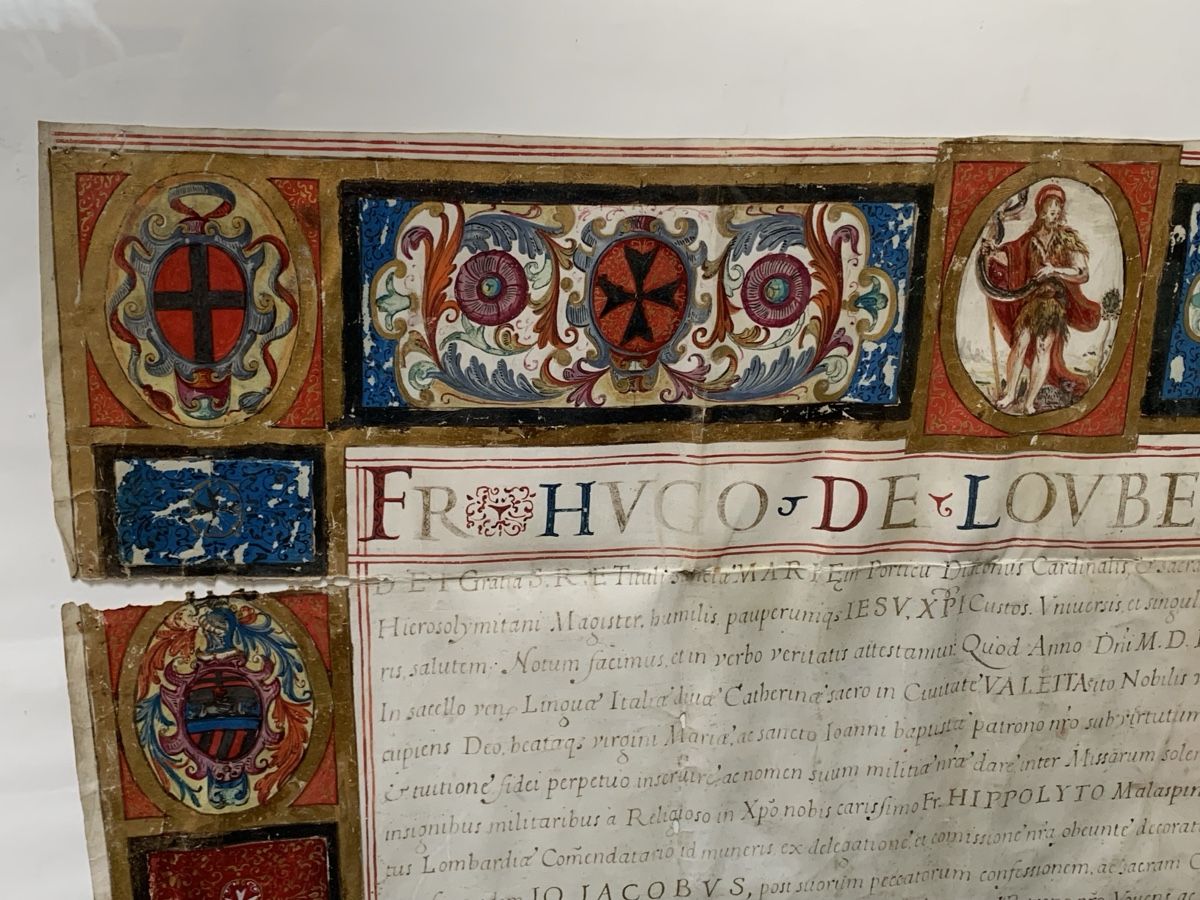 FR HVGO DE LOVBE
DEI Gratia S. R. E. Tituli Sanctæ MARIE in Porticu Diaconus Cardinalis, & sacra
Hierosolymitani Magister, humilis, pauperumqs IESV, XPI Custos. Vniuersis, et singul
ris, salutem. Notum facimus, et in verbo veritatis attestamur Quod Anno Dñi M. D.
In sacello ven Linguæ Italiæ diuæ Catherinæ sacro in Ciuitate VALETTA sito Nobilis
cupiens Deo, beatæqs virgini Mariæ, ac sancto Ioanni baptistæ patrono nrõ sub virtutum
& tuitione fidei perpetuo inseruire, ac nomen suum militiæ nræ dare inter Missarum solem
insignibus militaribus à Religioso in Xpõ nobis carissimo Fr. HIPPOLYTO Malaspin
tus Lombardiæ Com̃endatario id muneris, ex delegatione, et comissione nrã obeunte decorat
IO. IACOBVS, post suorum peccatorum confessionem, ac sacram